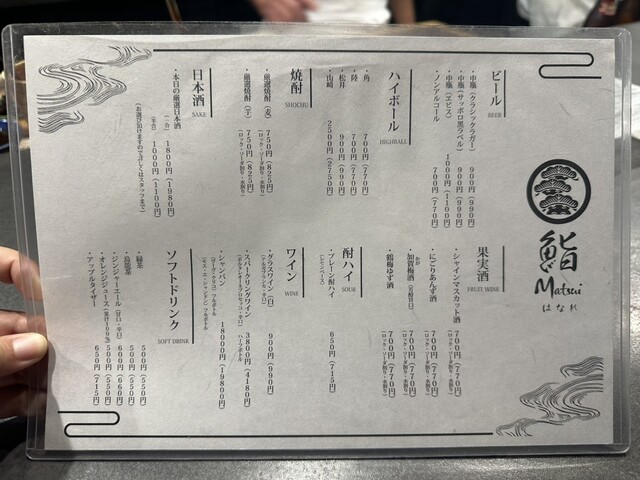 鮨
Matsui
はなれ
ビール
BEER
・中瓶(クラシックラガー) 900円(990円)
・中瓶(サッポロ黒ラベル) 900円(990円)
・中瓶(ヱビス) 1000円(1100円)
・ノンアルコール 700円(770円)
ハイボール
HIGHBALL
・角 700円(770円)
・陸 700円(770円)
・松井 900円(990円)
・山崎 2500円(2750円)
焼酎
SHOCHU
・厳選焼酎(麦) 750円(825円)
(ロック・ソーダ割り・水割り)
・厳選焼酎(芋) 750円(825円)
(ロック・ソーダ割り・水割り)
日本酒
SAKE
・本日の厳選日本酒
(一合) 1800円(1980円)
(半合) 1000円(1100円)
(お選び頂けますので詳しくはスタッフまで)
果実酒
FRUIT WINE
・シャインマスカット酒 700円(770円)
(ロック・ソーダ割り・水割り)
・にごりあんず酒 700円(770円)
(ロック・ソーダ割り・水割り)
・加賀梅酒 700円(770円)
(ロック・ソーダ割り・水割り)
・鶴梅ゆず酒 700円(770円)
(ロック・ソーダ割り・水割り)
酎ハイ
SOUR
・プレーン酎ハイ 650円(715円)
ワイン
WINE
・グラスワイン(白) 900円(990円)
・スパークリングワイン ハーフボトル 3800円(4180円)
・シャンパン 18000円(19800円)
ソフトドリンク
SOFT DRINK
・緑茶 500円(550円)
・烏龍茶 500円(550円)
・ジンジャーエール(甘口・辛口) 600円(660円)
・オレンジジュース(果汁100%) 500円(550円)
・アップルタイザー 650円(715円)